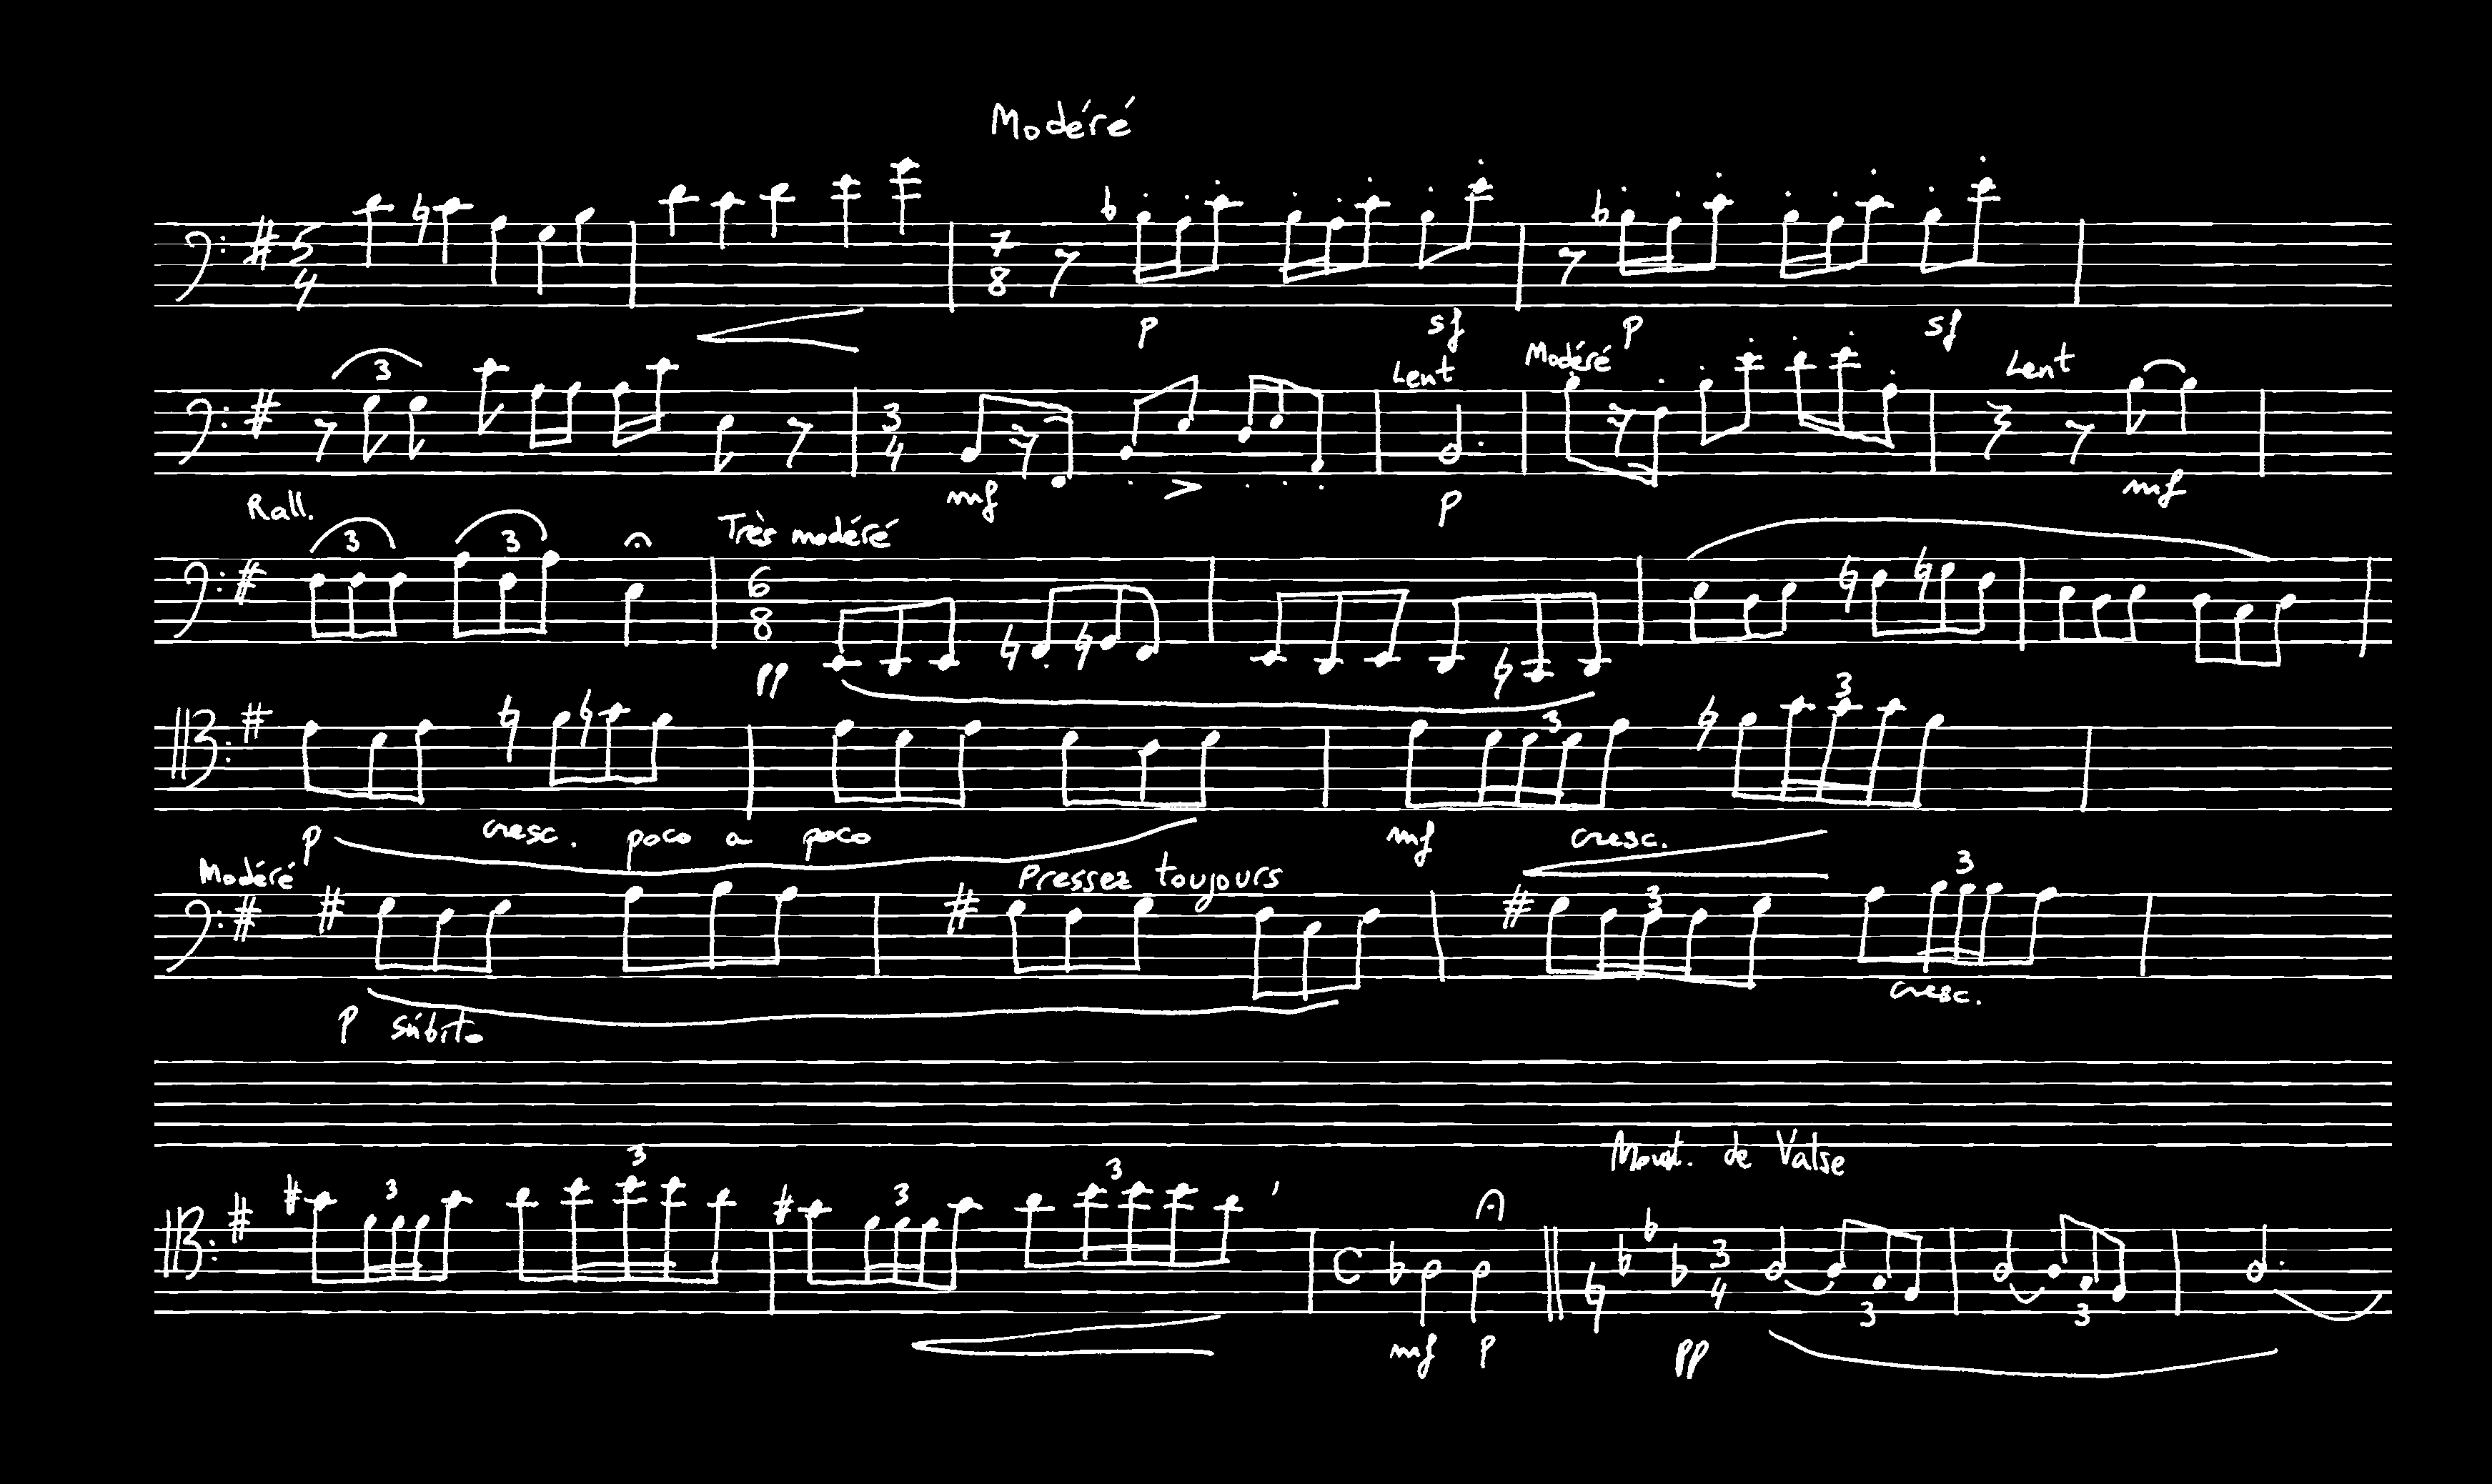 Modéré
5
4
7
8
p sf p sf
Lent Modéré Lent
3
3
4
mf p mf
Rall. Très modéré
3 3
6
8
pp
3 3
p cresc. poco a poco mf cresc.
Modéré Pressez toujours
3 3
p súbito cresc.
Mouvt. de Valse
3 3 3 3
C 3
4
3 3
mf p pp